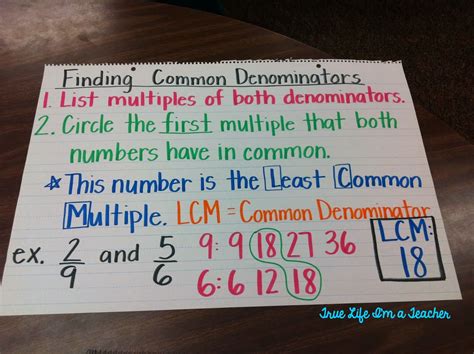 Finding Common Denominators
1. List multiples of both denominators.
2. Circle the first multiple that both
numbers have in common.
☆ This number is the Least Common
Multiple. LCM = Common Denominator
ex. 2/9 and 5/6
9: 9 18 27 36
6: 6 12 18
LCM:
18
True Life I'm a Teacher